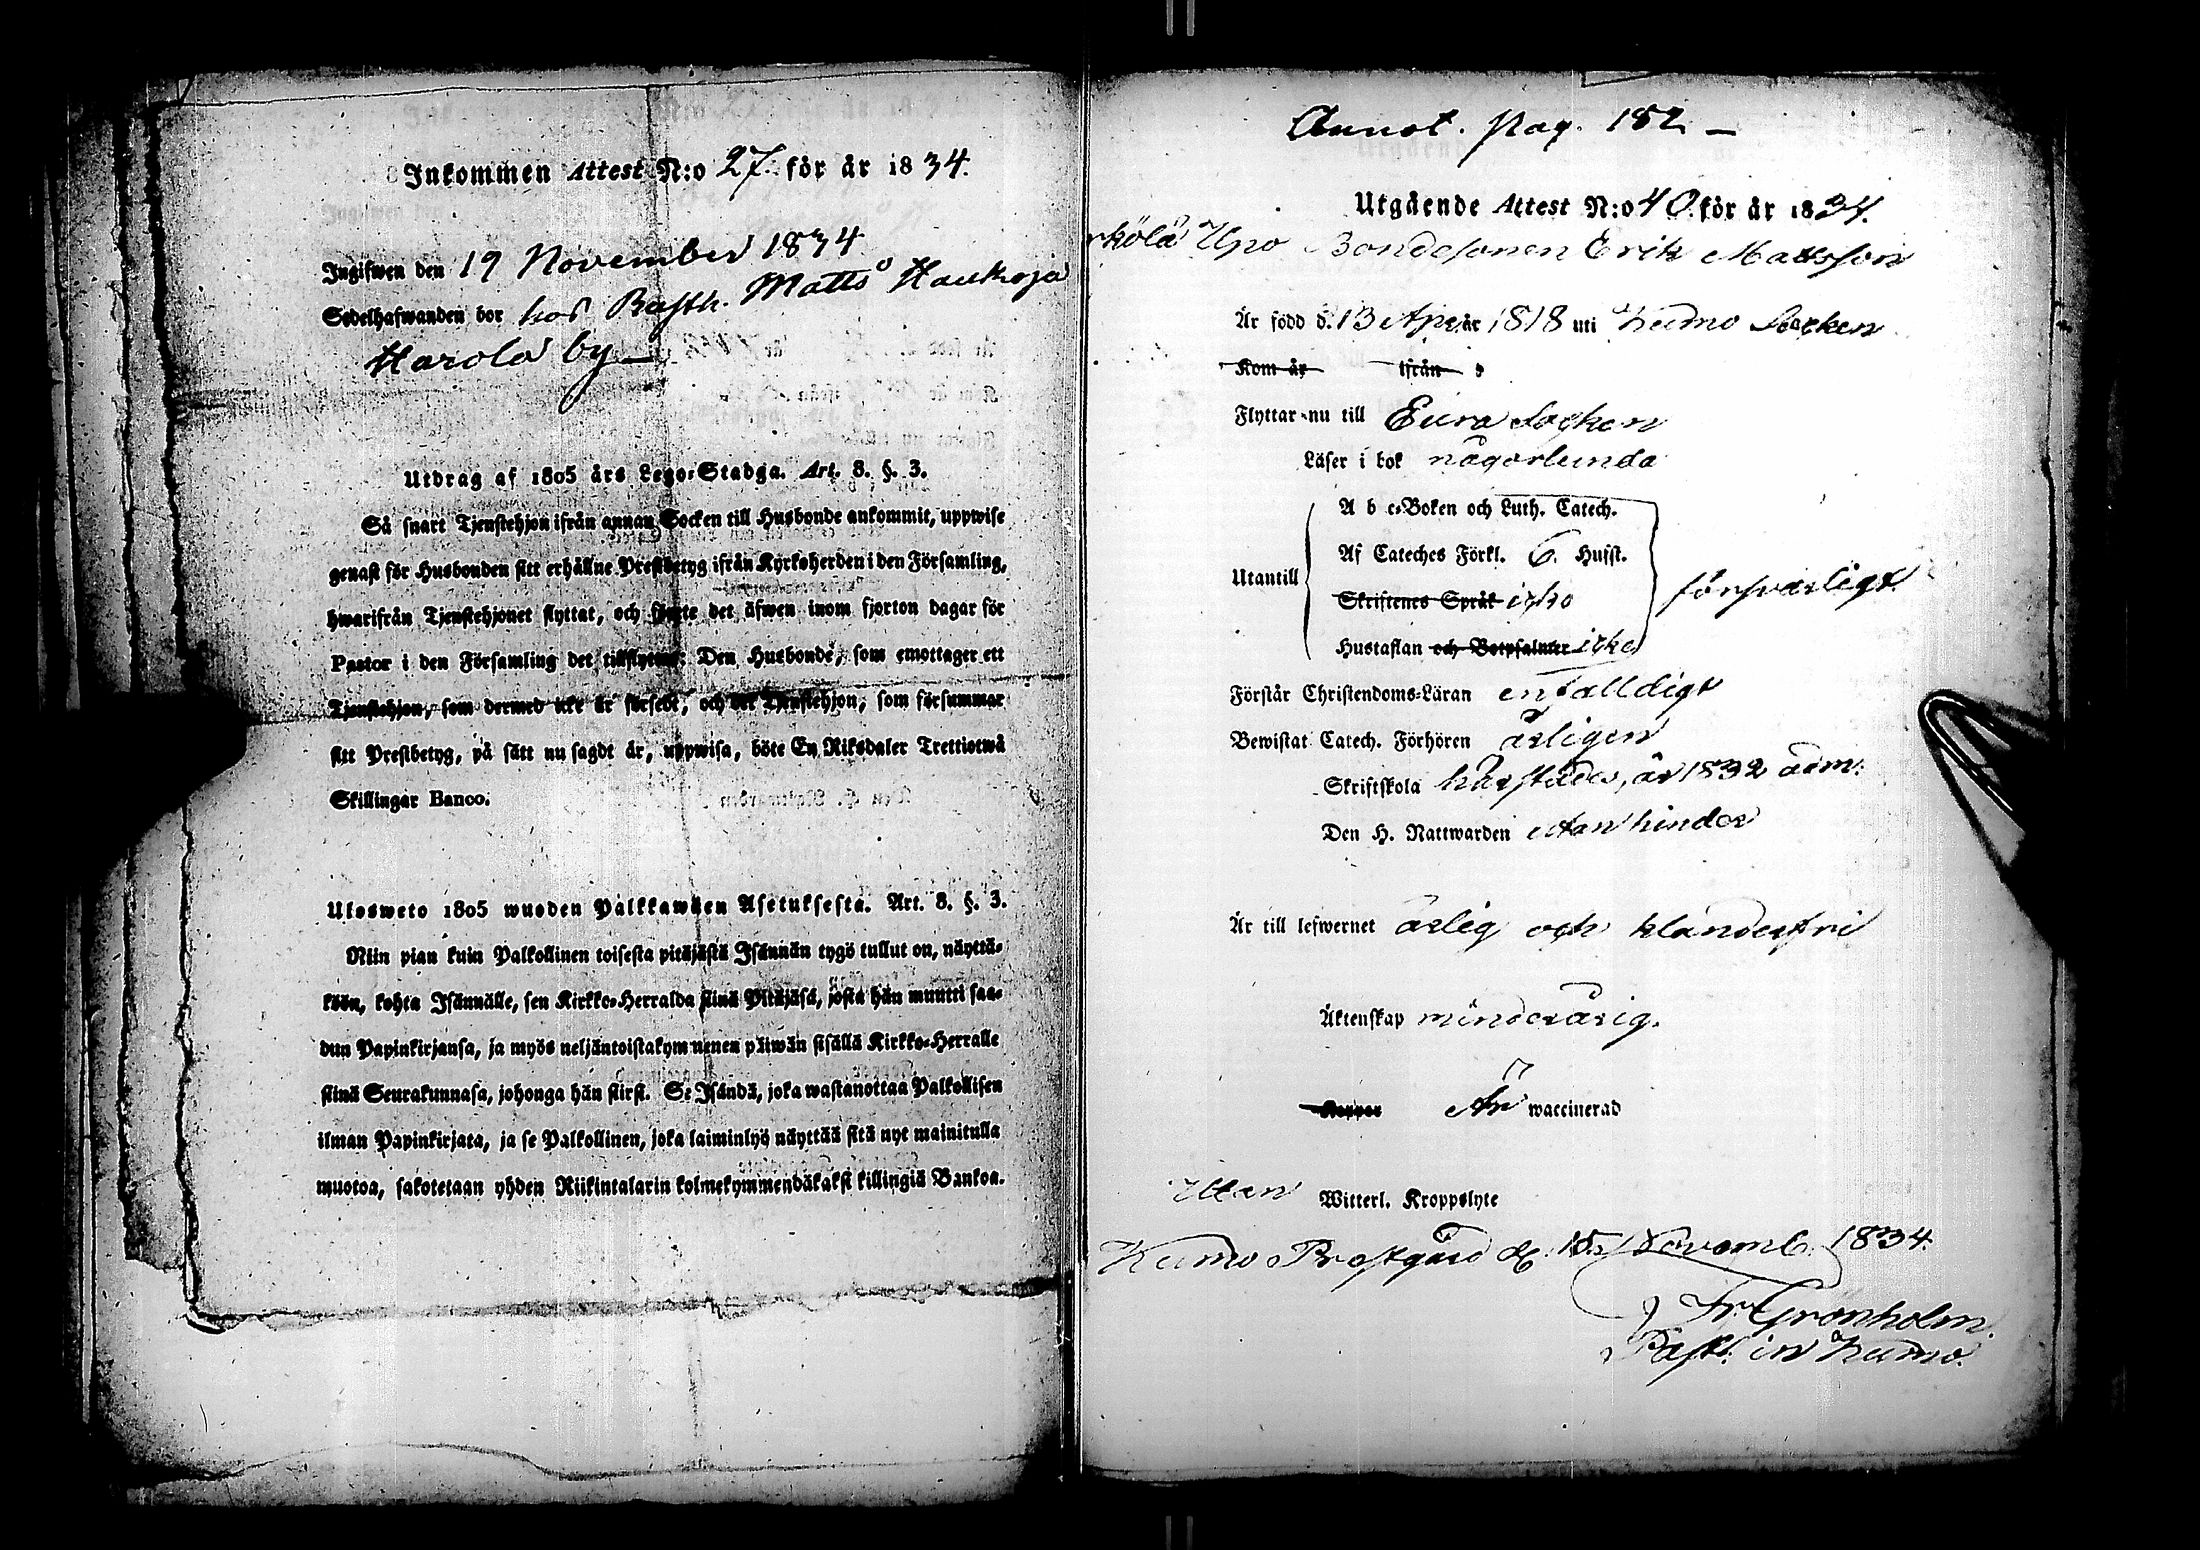 Inkommen Attest N:o 27. för år 1834.
Ingifwen den 19 November 1834
Sedelhafwanden bor hos Matts Haukoja
Harola by
Utdrag af 1805 års Lego-Stadga. Art. 8. §. 3.
Så snart Tjenstehjon ifrån annan Socken till Husbonde ankommit, uppwise
genast för Husbonden sitt erhållne Prestbetyg ifrån Kyrkoherden i den Församling,
hwarifrån Tjenstehjonet flyttat, och förete det äfwen inom fjorton dagar för
Pastor i den Församling det tillflyttat: Den Husbonde, som emottager ett
Tjenstehjon, som dermed icke är försedt, och det Tjenstehjon, som försummar
sitt Prestbetyg, på sätt nu sagdt är, uppwisa, böte En Riksdaler Trettiotwå
Skillingar Banco.
Ulosweto 1805 wuoden Palkkawäen Asetuksesta. Art. 8. §. 3.
Niin pian kuin Palkollinen toisesta pitäjästä Isännän tygö tullut on, näyttä-
köön, kohta Isännälle, sen Kirkko-Herralda siinä Pitäjäsä, josta hän muutti saa-
dun Papinkirjansa, ja myös neljäntoistakymmenen päiwän sisällä Kirkko-Herralle
siinä Seurakunnasa, johonga hän siirsi. Se Isändä, joka wastanottaa Palkollisen
ilman Papinkirjata, ja se Palkollinen, joka laiminlyö näyttää sitä nyt mainitulla
muotoa, sakotetaan yhden Riikintalarin kolmekymmendäkaksi killingiä Bankoa.
Annot. Pag. 182
Utgående Attest N:o 40. för år 1834.
Bondesonen Erik Matsson
Är född d. 13 Apr. år 1818 uti Kumo Socken
Kom år ifrån
Flyttar nu till Eura Socken
Läser i bok någorlunda
A b c-Boken och Luth. Catech.
Af Cateches Förkl. 6. Hufst.
Utantill
Skriftenes Språk icke
försvarligt
Hustaflan och Botpsalmer icke
Förstår Christendoms-Läran enfalldigt
Bewistat Catech. Förhören årligen
Skriftskola härstädes, år 1832 adm.
Den H. Nattwarden utan hinder
Är till lefwernet ärlig och klanderfri
Äktenskap minderårig.
Koppor Är waccinerad
Utan Witterl. Kroppslyte
Kumo Prestgård d. 15 Novemb. 1834.
Fr. Grönholm.
Past. in Kumo.